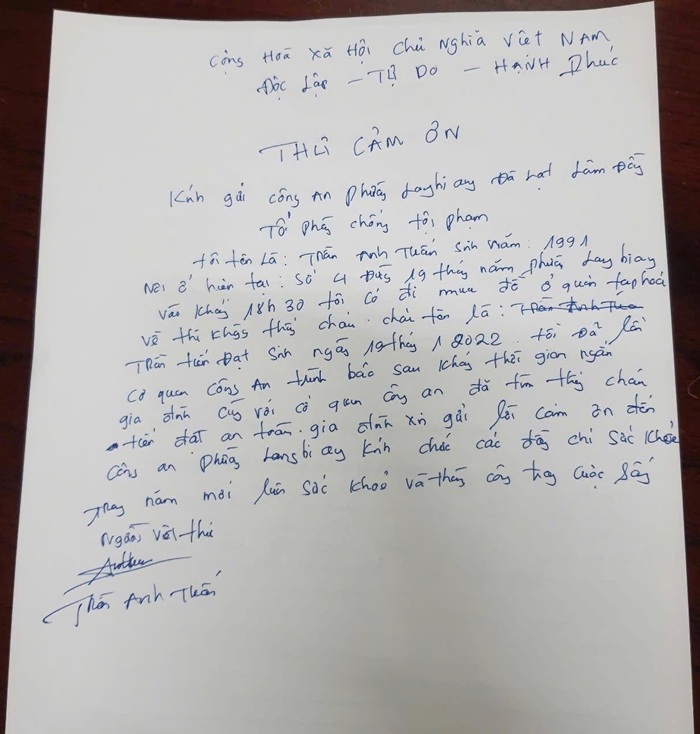 Cộng Hoà Xã Hội Chủ Nghĩa Việt NAM
Độc Lập - Tự Do - HẠNH Phúc
THƯ CẢM ƠN
Kính gửi công An phường Langbiang Đà Lạt Lâm Đồng
Tổ phòng chống tội phạm
Tôi tên Là: Trần Anh Tuấn sinh năm: 1991
Nơi ở hiện tại: Số 4 Đường 19 tháng năm phường Langbiang
vào khoảng 18h 30 tôi có đi mua đồ ở quán tạp hoá
về thì không thấy cháu. cháu tên là: Trần Anh Tua
Trần tiến Đạt sinh ngày 19 tháng 1 2022. tôi Đã lên
cơ quan Công An trình báo sau khoảng thời gian ngắn
gia đình cùng với cơ quan công an đã tìm thấy cháu
tiến đạt an toàn. gia đình xin gửi lời cảm ơn đến
công an phường Langbiang Kính chúc các đồng chí sức khoẻ
Trong năm mới luôn sức khoẻ và thành công trong cuộc sống
Người viết thư
Trần Anh Tuấn